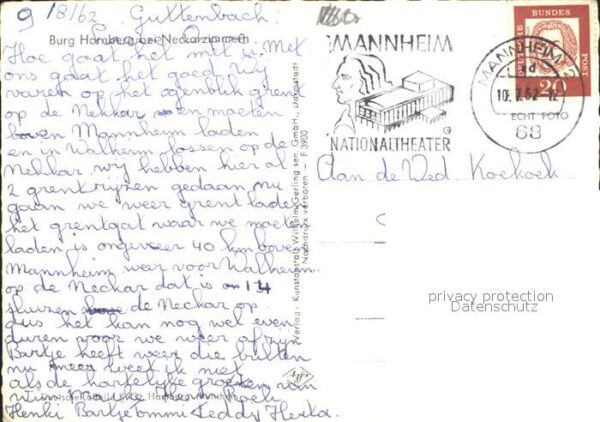 9/8/62 Guttenbach.
Burg Hornberg bei Neckarzimmern
Hoe gaat het met U Met
ons gaat het goed Wij
varen op het ogenblik grent
op de Nekkar en moeten
boven Mannheim laden
en in Walheim lossen op de
Nekkar wij hebben hier al
2 grentreizen gedaan nu
gaan we weer grent laden
het grentgat waar we moeten
laden is ongeveer 40 km boven
Mannheim weer voor Walheim
op de Neckar dat is 14
sluizen de Neckar op.
dus het kan nog wel even
duren voor we weer afzijn
Bartje heeft weer die bulten
nu meer weet ik niet
als de hartelijke groeten van
Wim Roeli
Henki Bartje Tommi Teddy Herta.
Verlag: Kunstanstalt Wilhelm Gerling sen. GmbH., Darmstadt
Nachdruck verboten F 3900
Agfa
MANNHEIM
NATIONALTHEATER
MANNHEIM 2
10.7.62-12
68
DEUTSCHE BUNDESPOST
20
ECHT FOTO
Aan de Wed. Koekoek
privacy protection
Datenschutz